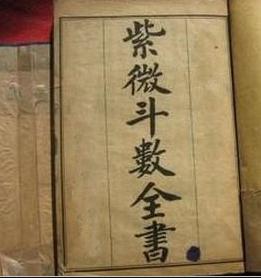 紫微斗數全書